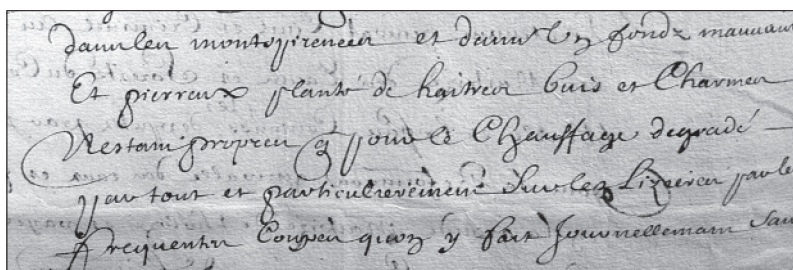 dans les montspirenees et dans Un fondz mauvais
Et pierreux plante de haitres buis et Charmes
Nestans propres q pour le Chauffage degradé
par tout et particulierement sur les Lizieres par les
frequentes Coupes quon y fait Journellemant sans